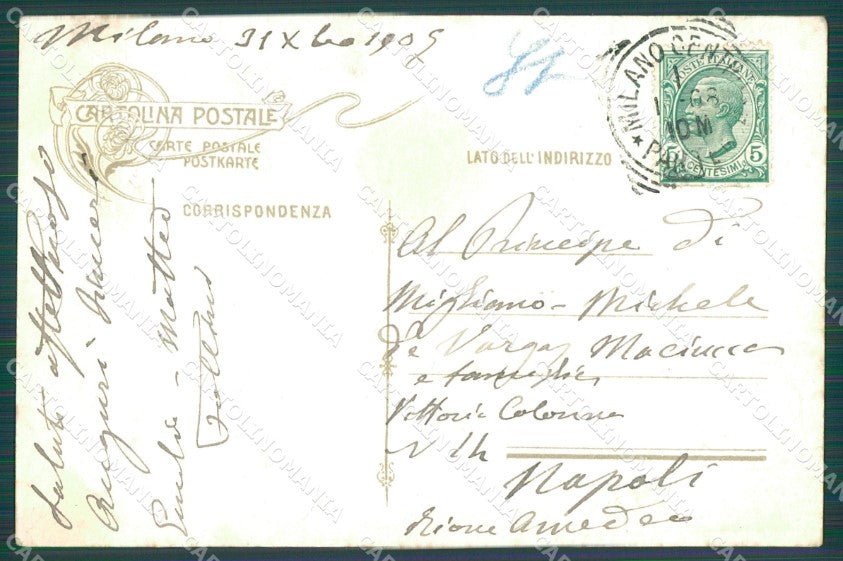 Milano 31 Xbre 1909
85
CARTOLINA POSTALE
CARTE POSTALE
POSTKARTE
LATO DELL'INDIRIZZO
CORRISPONDENZA
MILANO CENTRO
10M
POSTE ITALIANE
CENTESIMI 5
Al Principe di
Migliano - Michele
de Vargas Maciucca
e famiglia
Vittoria Colonna
N 14
Napoli
Rione Amedeo
Saluti affettuosi
Auguri sinceri
Matteo
CARTOLINOMANIA